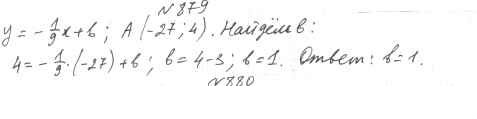 №879
y = -1/9x + b; A(-27; 4). Найдём b:
4 = -1/9·(-27) + b; b = 4-3; b = 1. Ответ: b = 1.
№880